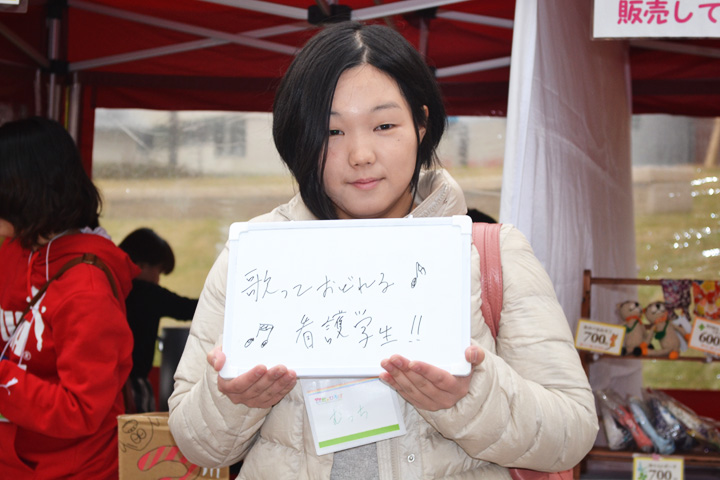 販売して
歌っておどれる♪
♫看護学生!!
700円
600
700